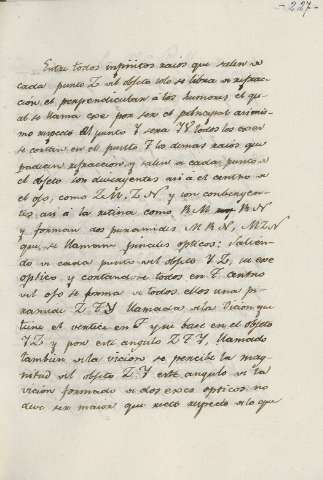 -227-
Entre todos infinitos raios que salen de
cada punto Z del objeto solo se libra de refrac-
cion el perpendicular á los humores, el qu
al se llama exe por ser el principal asimis-
mo respecto del punto Y sera YT todos los exes
se cortan en el punto T los demas raios que
padecen refraccion y salen de cada punto de
el objeto son divergentes asi á el centro de
el ojo, como ZM, ZN y son convergen-
tes asi á la retina como RM RN
y forman dos piramides MRN, MZN
que se llaman pinceles opticos: salien-
do de cada punto del objeto YZ, su exe
optico y cortandose todos en T centro
del ojo se forma de todos ellos una pi-
ramide ZTY llamada de la Vicion que
tiene el vertice en T y su base en el objeto
YZ y por este angulo ZTY, llamado
tambien de la vicion se percibe la mag-
nitud del objeto ZY este angulo de la
vicion formado de dos exes opticos no
deve ser maior que recto respecto de lo que